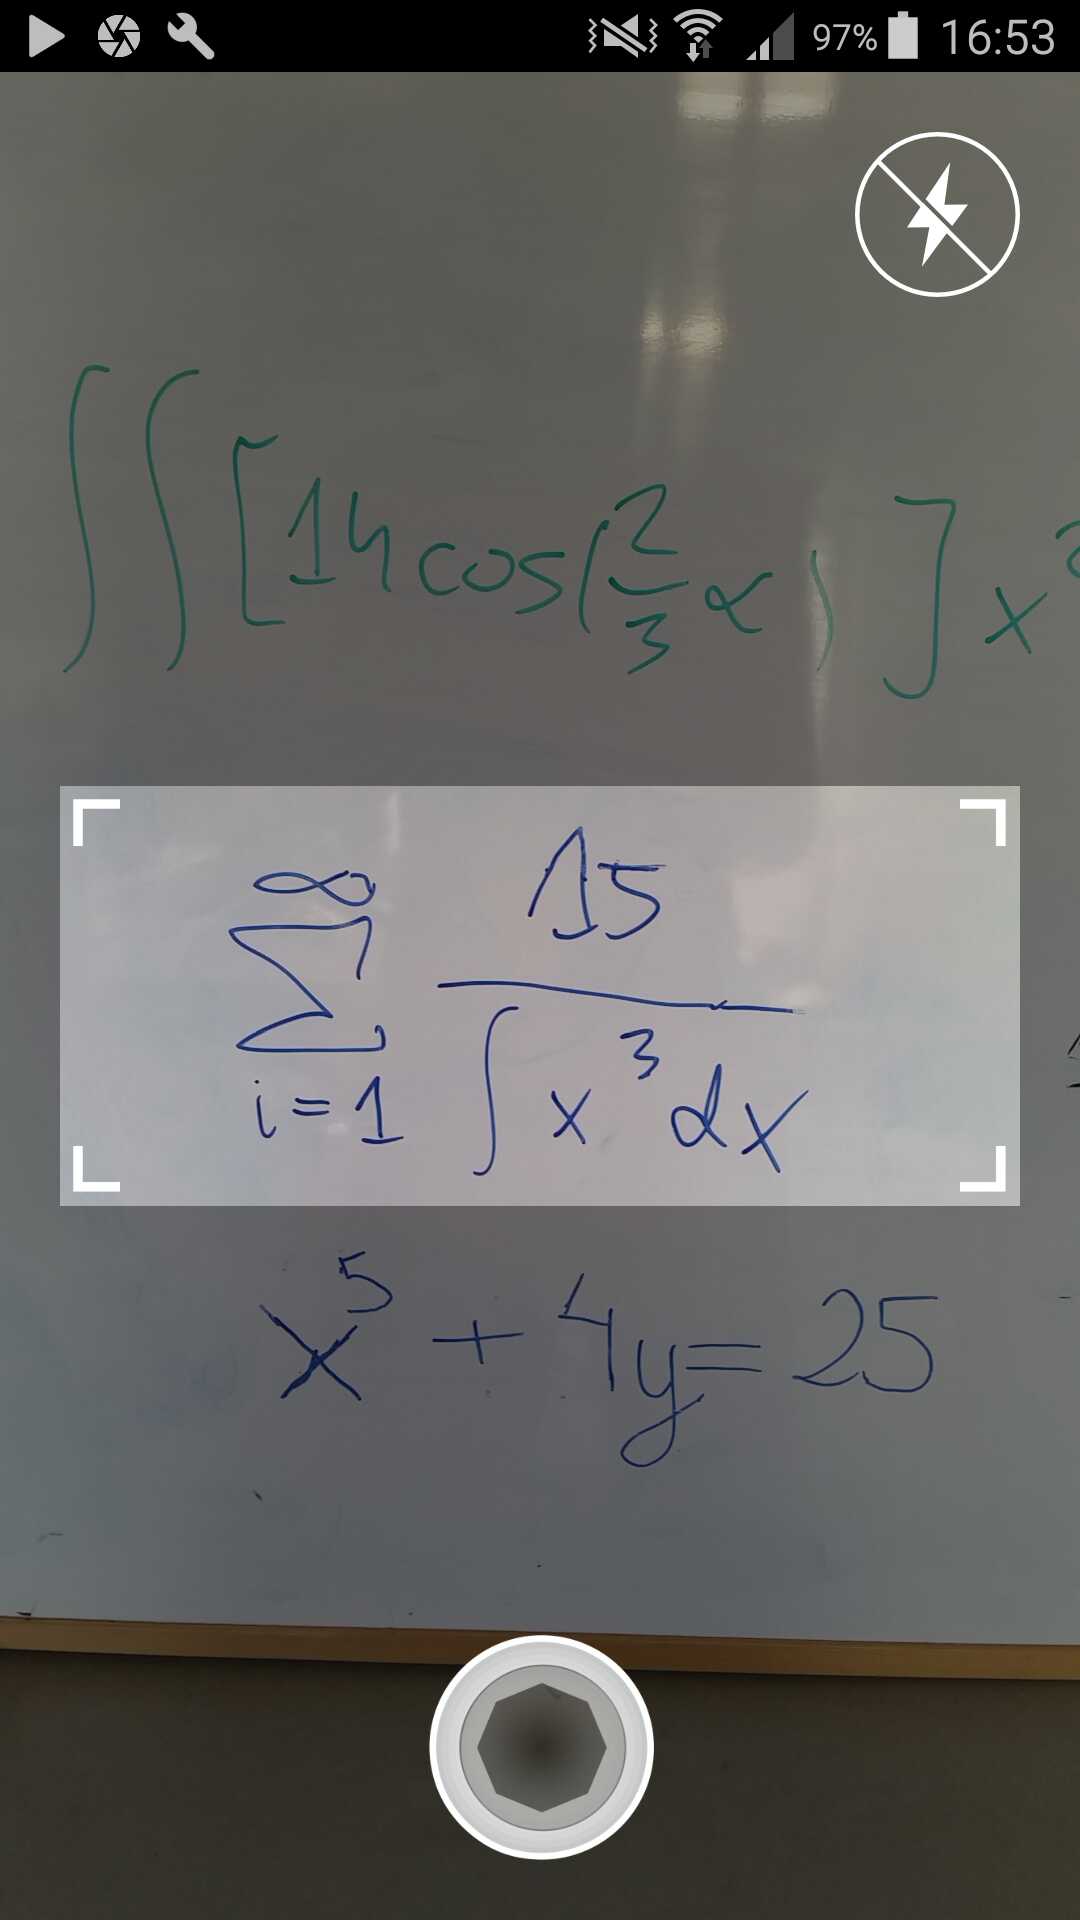 97% 16:53
∫∫[14cos(2/3 α)]x
∑_{i=1}^{∞} 15/∫x³dx
x⁵+4y=25